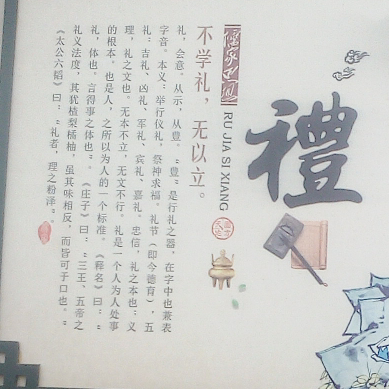 禮
儒家思想
RU JIA SI XIANG
不学礼，无以立。
礼，会意。从示，从豊。“豊”是行礼之器，在字中也兼表
字音。本义：举行仪礼，祭神求福。礼节（即今德育），五
礼：吉礼、凶礼、军礼、宾礼、嘉礼。忠信，礼之本也；义
理，礼之文也。无本不立，无文不行。礼是一个人为人处事
的根本。也是人，之所以为人的一个标准。《释名》曰：“
礼，体也。言得事之体也”。《庄子》曰：“三王、五帝之
礼义法度，其犹楂梨橘柚，虽其味相反，而皆可于口也。“
《太公六韬》曰：“礼者，理之粉泽”。